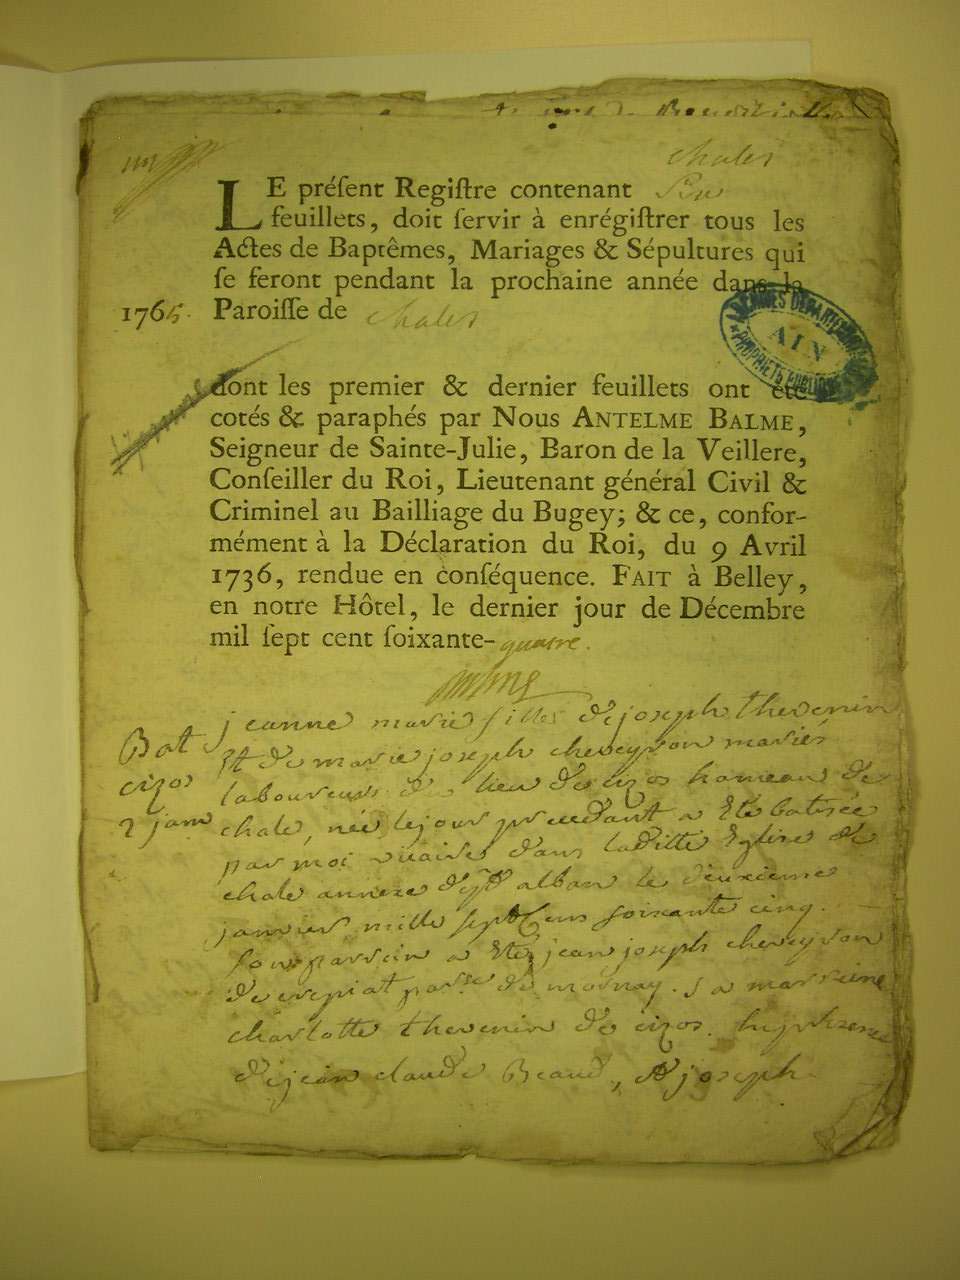 chales
LE préſent Regiſtre contenant
feuillets, doit ſervir à enrégiſtrer tous les
Actes de Baptêmes, Mariages & Sépultures qui
ſe feront pendant la prochaine année dans la
1765. Paroiſſe de chales
ARCHIVES DEPARTEMENTALES
AIN
PROPRIÉTÉ PUBLIQUE
dont les premier & dernier feuillets ont été
cotés & paraphés par Nous ANTELME BALME,
Seigneur de Sainte-Julie, Baron de la Veillere,
Conſeiller du Roi, Lieutenant général Civil &
Criminel au Bailliage du Bugey; & ce, confor-
mément à la Déclaration du Roi, du 9 Avril
1736, rendue en conſéquence. FAIT à Belley,
en notre Hôtel, le dernier jour de Décembre
mil ſept cent ſoixante-quatre.
Bat
cizos
2 janv
jeanne marie fille de joseph thevenin
Et de marie joseph cheveyron mariés
laboureurs du lieu de cizos hameau de
chale, née le jour precedant a Eté batisée
par moi vicaire dans laditte Eglise de
chale annexe de st alban le deuxieme
janvier mille sept Cens soixante cinq.
son parrein a Eté jean joseph cheveyron
de crepiat parsse de mornay. sa marreine
charlotte thevenin de cizos.
de jean claude Beaud, & joseph